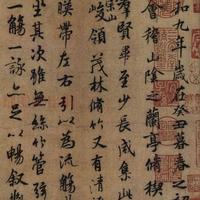 和九年歲在癸丑暮春之初
會稽山陰之蘭亭脩稧
羣賢畢至少長咸集此
崇山
峻領茂林脩竹又有清
暎帶左右引以為流觴
坐其次雖無絲竹管弦
一觴一詠亦足以暢敘